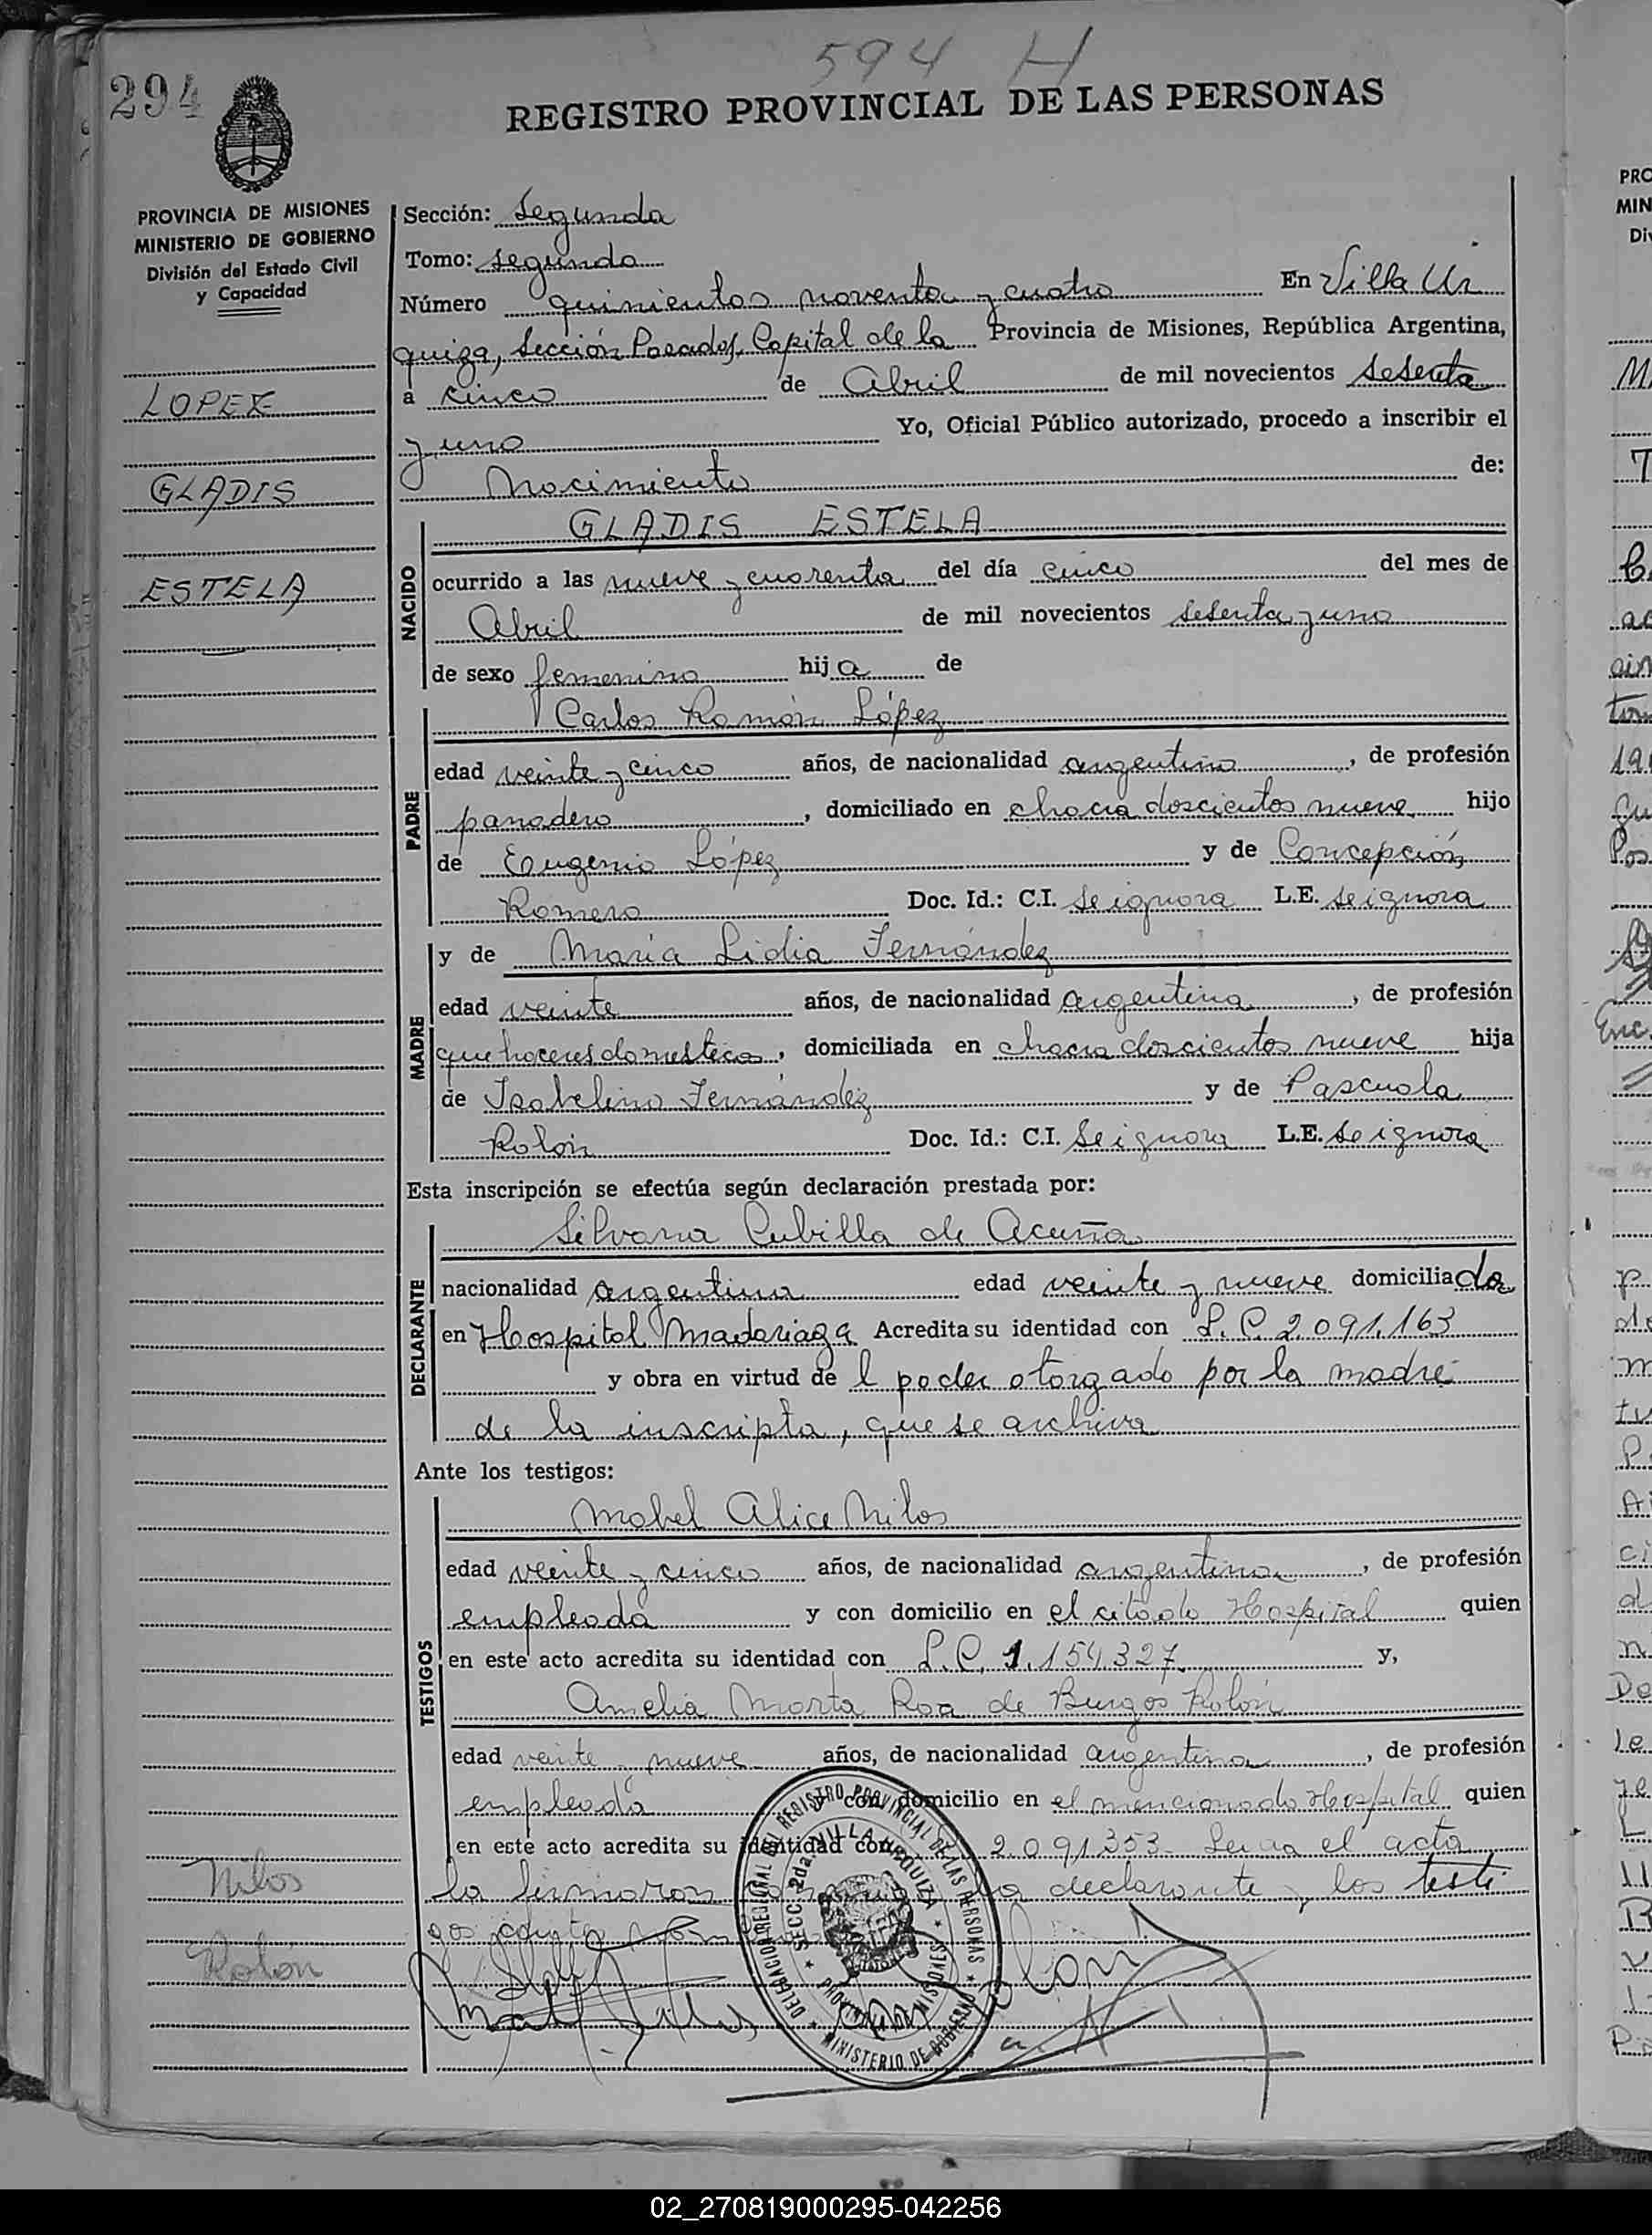 594 H
294
REGISTRO PROVINCIAL DE LAS PERSONAS
PROVINCIA DE MISIONES
MINISTERIO DE GOBIERNO
División del Estado Civil
y Capacidad
LOPEZ
GLADIS
ESTELA
Sección: Segunda
Tomo: segundo
Número quinientos noventa y cuatro En Villa Ur
quiza, Sección Posadas, Capital de la Provincia de Misiones, República Argentina,
a cinco de Abril de mil novecientos sesenta
y uno Yo, Oficial Público autorizado, procedo a inscribir el
Nacimiento de:
NACIDO
GLADIS ESTELA
ocurrido a las nueve y cuarenta del día cinco del mes de
Abril de mil novecientos sesenta y uno
de sexo femenino hija de
PADRE
Carlos Ramón López
edad veinte y cinco años, de nacionalidad argentina, de profesión
panadero, domiciliado en chacra doscientos nueve hijo
de Eugenio López y de Concepción
Romero Doc. Id.: C.I. Se ignora L.E. se ignora
MADRE
y de María Lidia Fernández
edad veinte años, de nacionalidad argentina, de profesión
quehaceres domesticos, domiciliada en chacra doscientos nueve hija
de Isabelino Fernández y de Pascuala
Rolón Doc. Id.: C.I. Se ignora L.E. se ignora
Esta inscripción se efectúa según declaración prestada por:
DECLARANTE
Silvana Cubilla de Acuña
nacionalidad argentina edad veinte y nueve domiciliada
en Hospital Madariaga Acredita su identidad con L.C. 2.091.163
y obra en virtud de l poder otorgado por la madre
de la inscripta, que se archiva
Ante los testigos:
TESTIGOS
Mabel Alice Nilos
edad veinte y cinco años, de nacionalidad argentina, de profesión
empleada y con domicilio en el citado Hospital quien
en este acto acredita su identidad con L.C. 1.154.327 y,
Amelia Marta Roa de Burgos Rolón
edad veinte y nueve años, de nacionalidad argentina, de profesión
empleada y con domicilio en el mencionado Hospital quien
en este acto acredita su identidad con 2.091353- Leida el acta
la firmaron la declarante y los testi
gos
Nilos
Rolón
DELEGACION REGIONAL DEL REGISTRO PROVINCIAL DE LAS PERSONAS
SECC. 2da. VILLA URQUIZA
PROVINCIA MISIONES
MINISTERIO DE GOBIERNO
02_270819000295-042256